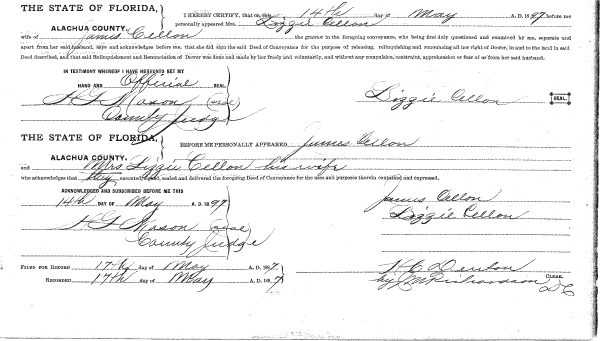 THE STATE OF FLORIDA,
ALACHUA COUNTY.
I HEREBY CERTIFY, that on this 14th day of May A. D. 1897 before me
personally appeared Mrs. Lizzie Cellon
wife of James Cellon the grantor in the foregoing conveyance, who being first duly questioned and examined by me, separate and
apart from her said husband, says and acknowledges before me, that she did sign the said Deed of Conveyance for the purpose of releasing, relinquishing and renouncing all her right of Dower, in and to the land in said
Deed described, and that said Relinquishment and Renunciation of Dower was done and made by her freely and voluntarily, and without any compulsion, constraint, apprehension or fear of or from her said husband.
IN TESTIMONY WHEREOF I HAVE HEREUNTO SET MY
HAND AND Official SEAL.
H G Mason (seal)
County Judge
Lizzie Cellon SEAL.
THE STATE OF FLORIDA,
ALACHUA COUNTY.
BEFORE ME PERSONALLY APPEARED James Cellon
and Mrs Lizzie Cellon his wife
who acknowledges that they executed, sealed and delivered the foregoing Deed of Conveyance for the uses and purposes therein contained and expressed.
ACKNOWLEDGED AND SUBSCRIBED BEFORE ME THIS
14th DAY OF May A. D. 1897
H G Mason (seal)
County Judge
James Cellon
Lizzie Cellon
FILED FOR RECORD 17th day of May A. D. 1897
RECORDED 17th day of May A. D. 1897
H C Denton CLERK.
by J M Richardson D C